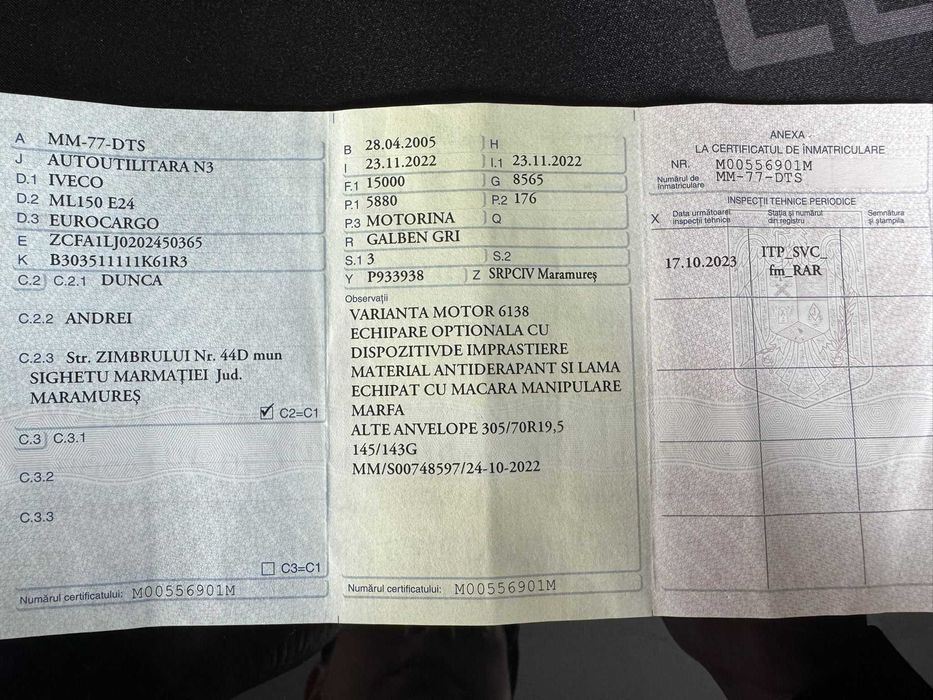 A MM-77-DTS
J AUTOUTILITARA N3
D.1 IVECO
D.2 ML150 E24
D.3 EUROCARGO
E ZCFA1LJ0202450365
K B303511111K61R3
C.2 C.2.1 DUNCA
C.2.2 ANDREI
C.2.3 Str. ZIMBRULUI Nr. 44D mun
SIGHETU MARMAȚIEI Jud.
MARAMUREȘ
C2=C1
C.3 C.3.1
C.3.2
C.3.3
C3=C1
Numărul certificatului: M00556901M
B 28.04.2005 H
I 23.11.2022 I.1 23.11.2022
F.1 15000 G 8565
P.1 5880 P.2 176
P.3 MOTORINA Q
R GALBEN GRI
S.1 3 S.2
Y P933938 Z SRPCIV Maramureș
Observații
VARIANTA MOTOR 6138
ECHIPARE OPTIONALA CU
DISPOZITIVDE IMPRASTIERE
MATERIAL ANTIDERAPANT SI LAMA
ECHIPAT CU MACARA MANIPULARE
MARFA
ALTE ANVELOPE 305/70R19,5
145/143G
MM/S00748597/24-10-2022
Numărul certificatului: M00556901M
ANEXA
LA CERTIFICATUL DE ÎNMATRICULARE
NR. M00556901M
Numărul de
înmatriculare MM-77-DTS
INSPECȚII TEHNICE PERIODICE
X Data următoarei
inspecții tehnice
Stația și numărul
din registru
Semnătura
și ștampila
17.10.2023 ITP_SVC_
fm_RAR